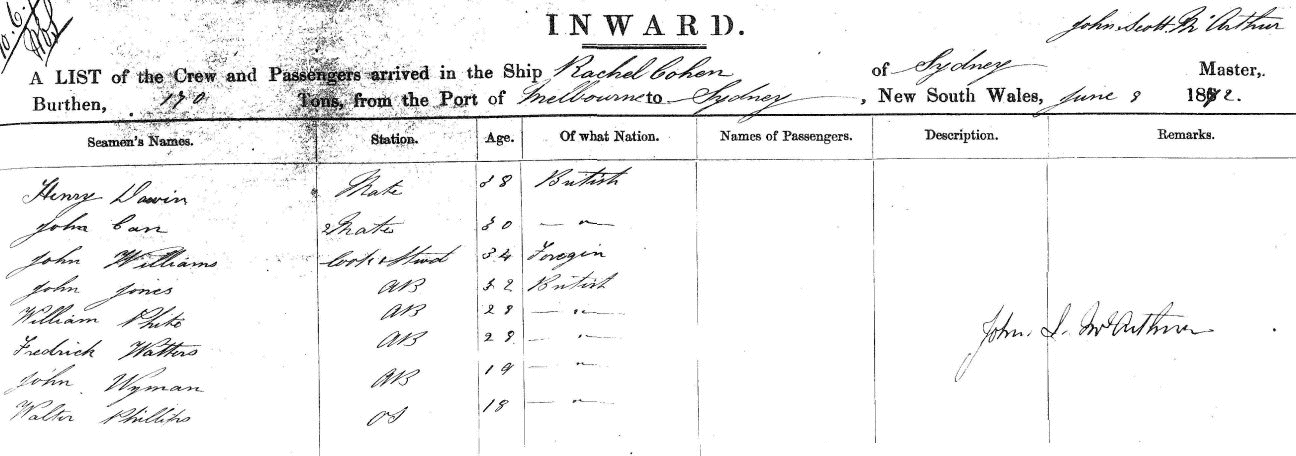 10.6.
INWARD.
John Scott McArthur
A LIST of the Crew and Passengers arrived in the Ship Rachel Cohen of Sydney Master,
Burthen, 170 Tons, from the Port of Melbourne to Sydney, New South Wales, June 8 1872.
Seamen's Names. Station. Age. Of what Nation. Names of Passengers. Description. Remarks.
Henry Dawin Mate 38 British
John Carr 2 Mate 30 — " —
John Williams Cook & Stwd 34 Foregin
John Jones AB 32 British
William White AB 28 — " —
Fredrick Watters AB 28 — " —
John Wyman AB 19 — " —
Walter Phillips OS 18 — " —
John S. McArthur